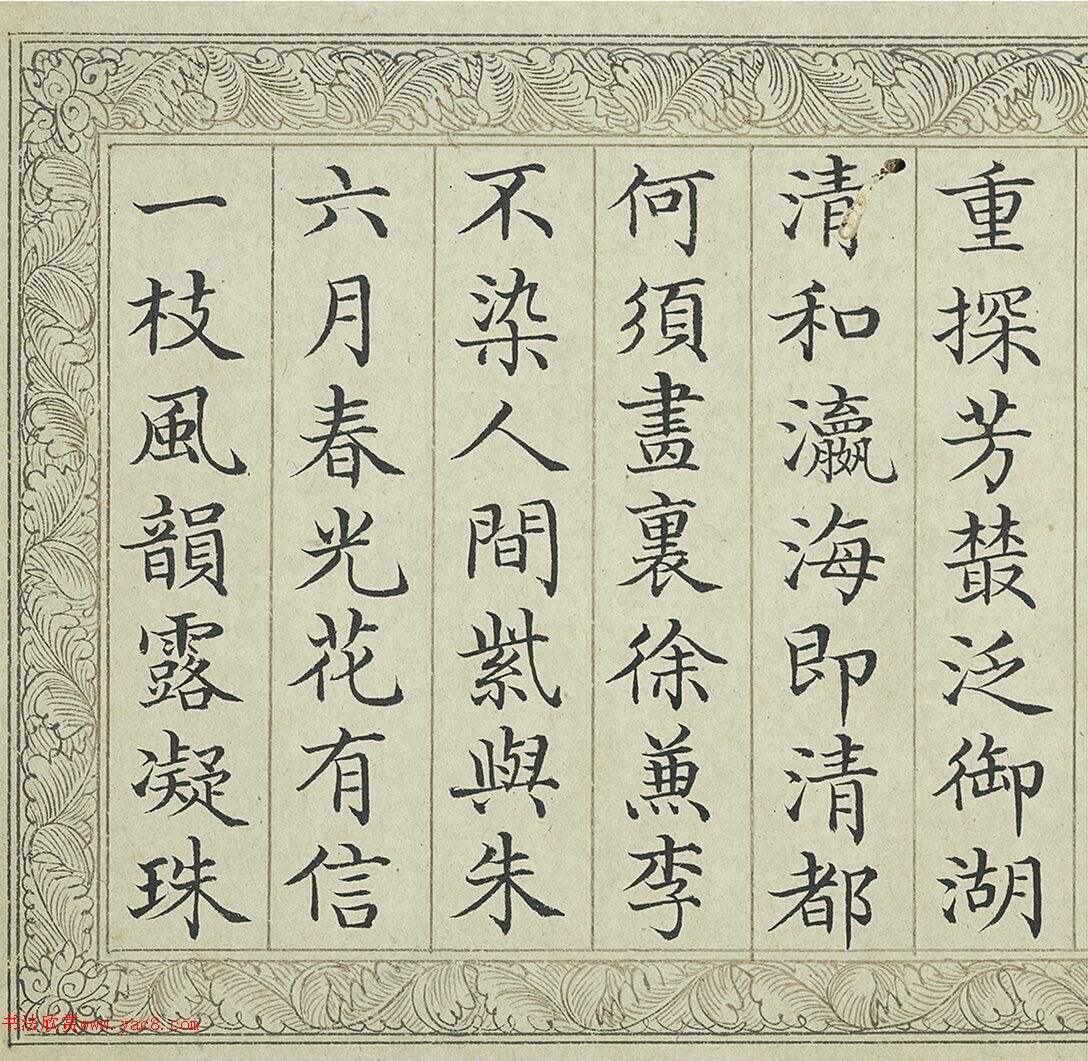 重探芳叢泛御湖
清和瀛海即清都
何須畫裏徐兼李
不染人間紫與朱
六月春光花有信
一枝風韻露凝珠
书法欣赏www.yac8.com